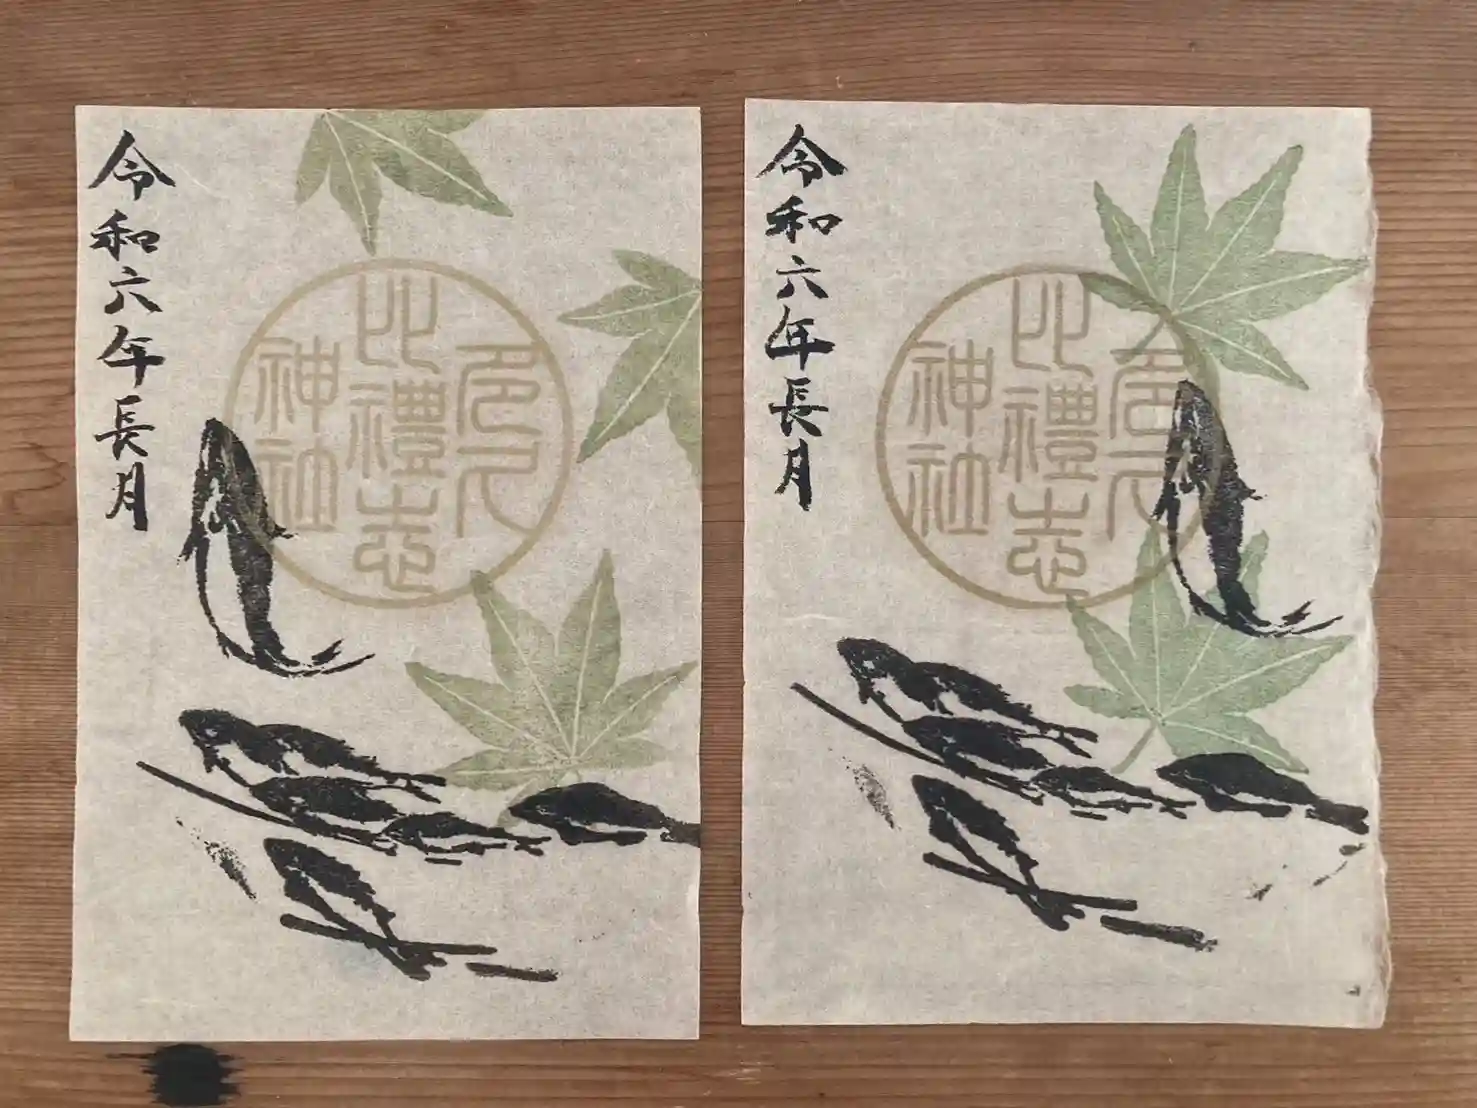 多久
比禮志
神社
令和六年長月
多久
比禮志
神社
令和六年長月